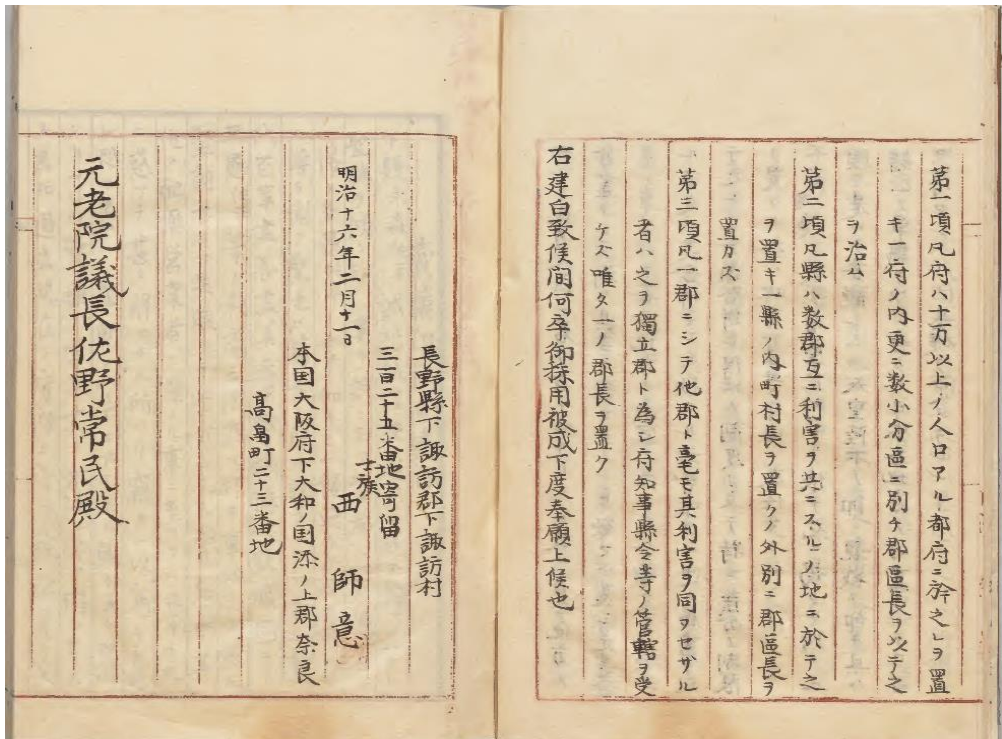 第一項凡府ハ十万以上ノ人口アル都府ニ於之レヲ置
キ一府ノ内更ニ数小分區ニ別チ郡區長ヲ以テ之
ヲ治ム
第二項凡縣ハ数郡互ニ利害ヲ共ニスルノ地ニ於テ之
ヲ置キ一縣ノ内町村長ヲ置クノ外別ニ郡區長ヲ
置カス
第三項凡一郡ニシテ他郡ト毫モ其利害ヲ同ヲセザル
者ハ之ヲ獨立郡ト為シ府知事縣令等ノ管轄ヲ受
ケズ唯タ一ノ郡長ヲ置ク
右建白致候間何卒御採用被成下度奉願上候也
長野縣下諏訪郡下諏訪村
三百二十五番地寄留
士族
西師意
明治十六年二月十一日
本国大阪府下大和ノ国添ノ上郡奈良
髙畠町二十三番地
元老院議長佐野常民殿